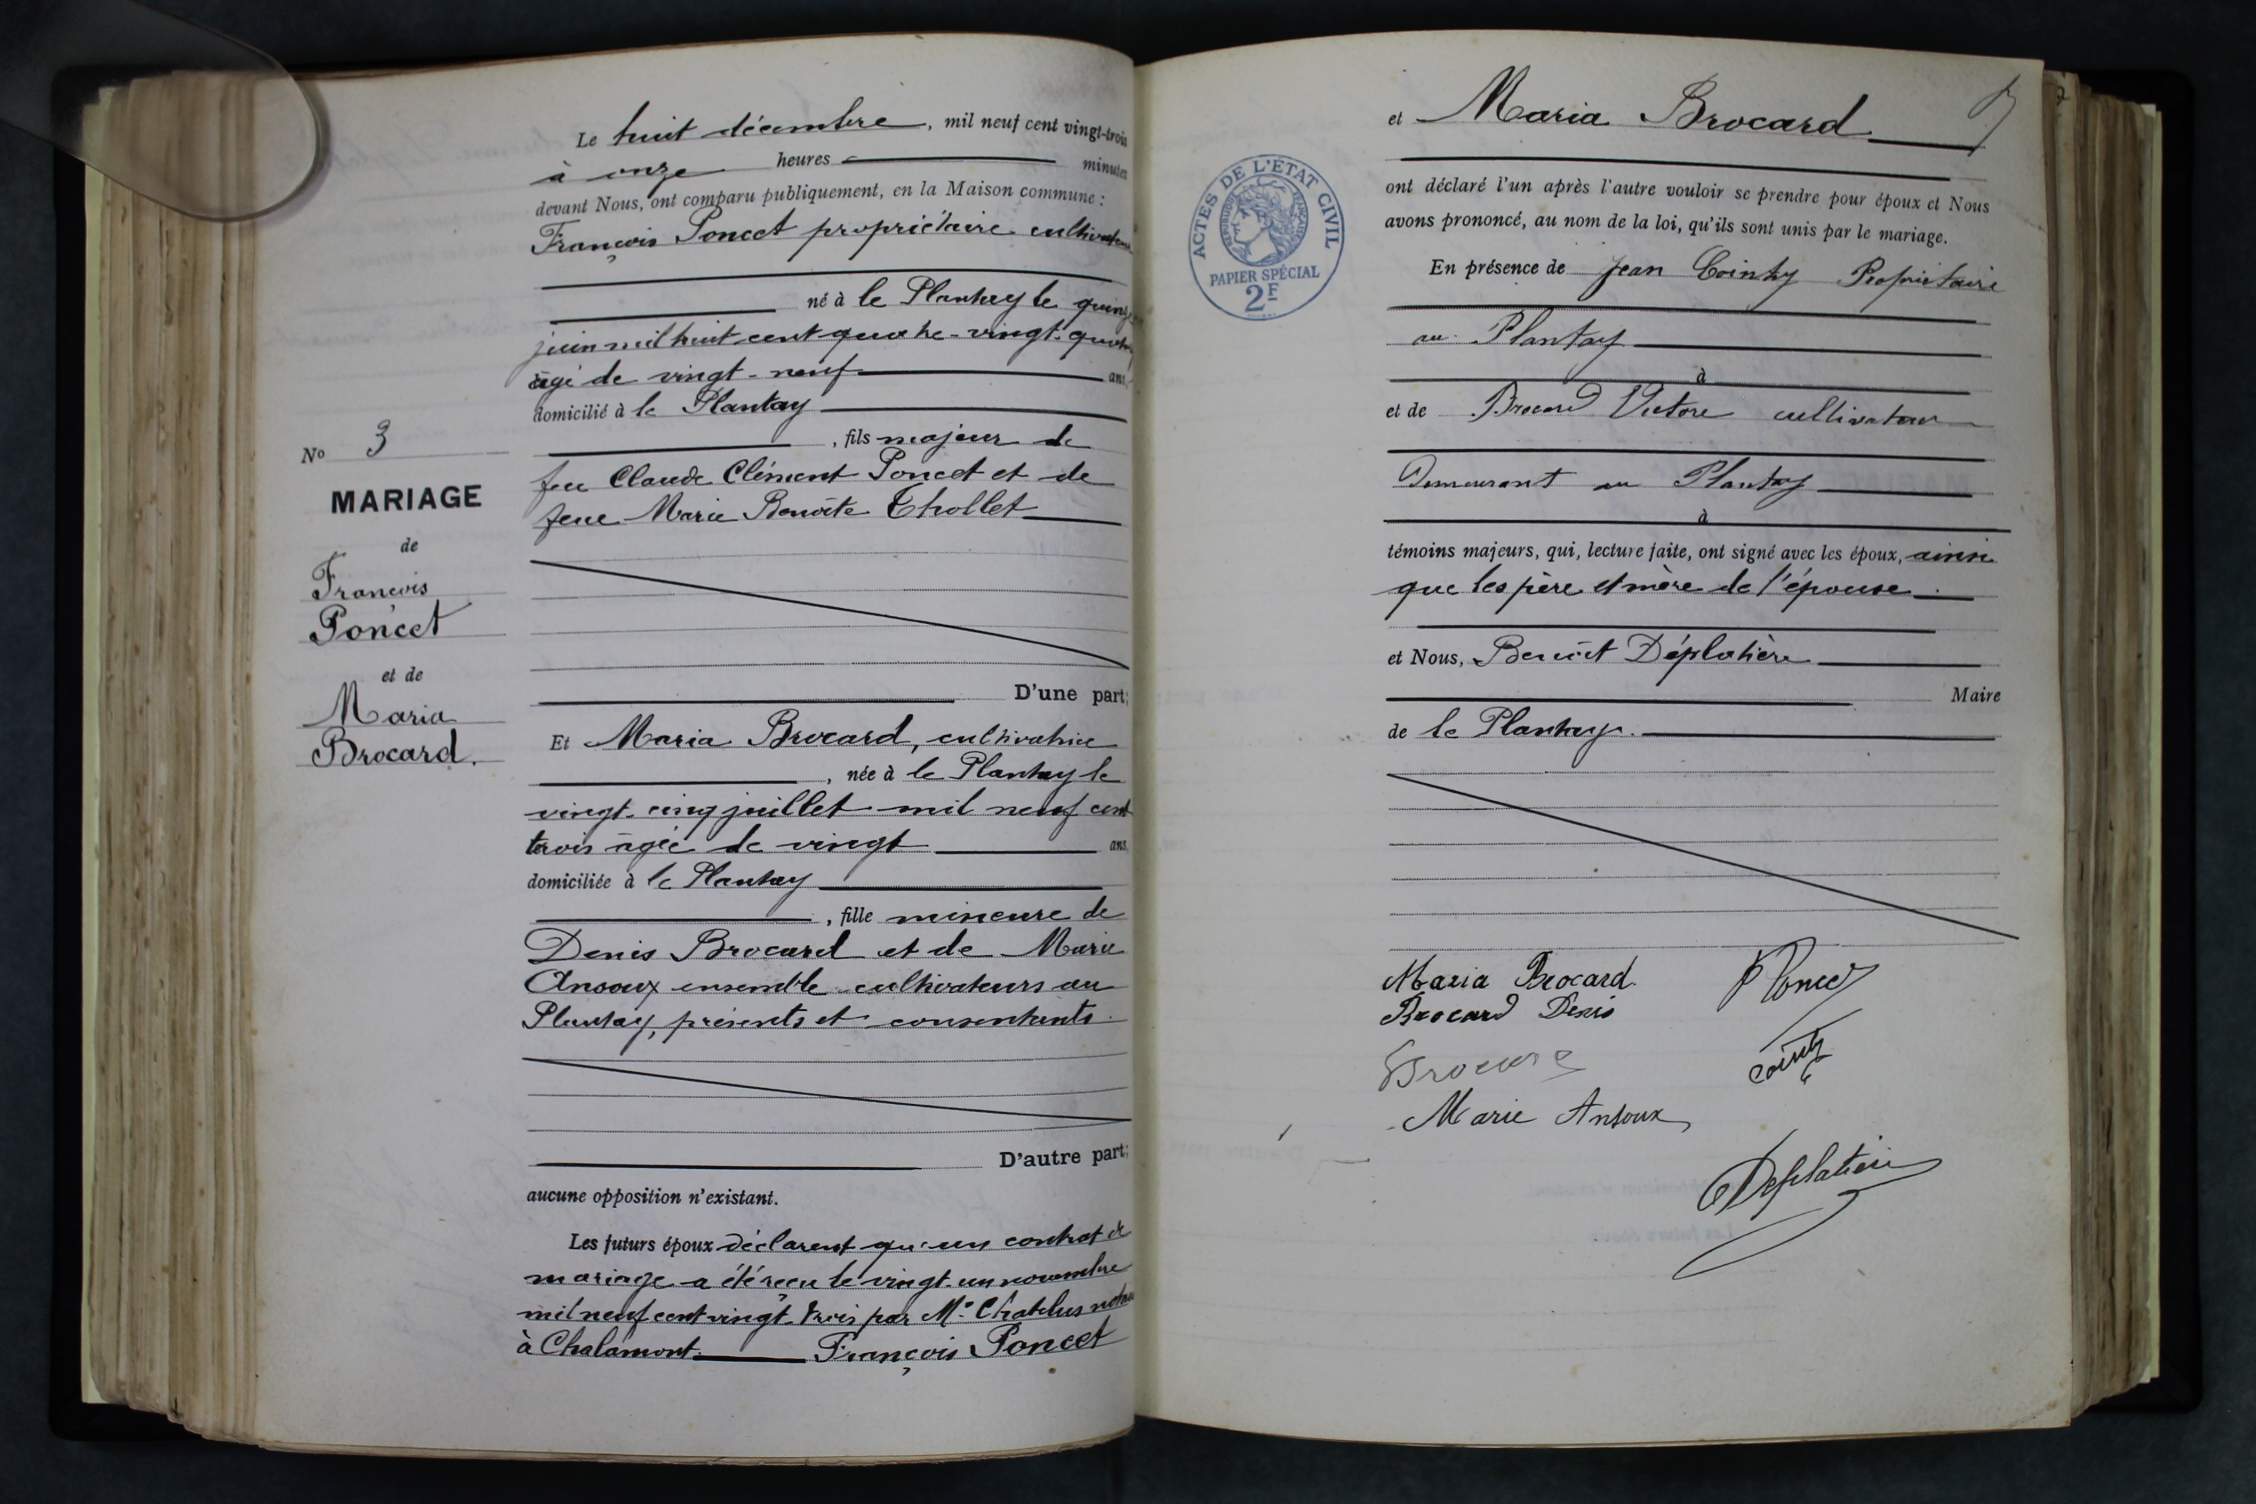 Le huit décembre, mil neuf cent vingt-trois
à onze heures minutes
devant Nous, ont comparu publiquement, en la Maison commune :
François Poncet propriétaire cultivateur
né à le Plantay le quinze
juin mil huit cent quatre-vingt-quatorze
âgé de vingt-neuf ans,
domicilié à le Plantay
, fils majeur de
feu Claude Clément Poncet et de
feue Marie Benoîte Thollet
D'une part;
Et Maria Brocard, cultivatrice
, née à le Plantay le
vingt-cinq juillet mil neuf cent
trois âgée de vingt ans,
domiciliée à le Plantay
, fille mineure de
Denis Brocard et de Marie
Ansoux ensemble cultivateurs au
Plantay, présents et consentants.
D'autre part;
aucune opposition n'existant.
Les futurs époux déclarent qu'un contrat de
mariage a été reçu le vingt-un novembre
mil neuf cent vingt-trois par Me Chatelus notaire
à Chalamont. François Poncet
No 3
MARIAGE
de
François
Poncet
et de
Maria
Brocard.
et Maria Brocard
ont déclaré l'un après l'autre vouloir se prendre pour époux et Nous
avons prononcé, au nom de la loi, qu'ils sont unis par le mariage.
En présence de Jean Cointy Propriétaire
au Plantay
à
et de Brocard Victore cultivateur
Demeurant au Plantay
à
témoins majeurs, qui, lecture faite, ont signé avec les époux, ainsi
que les père et mère de l'épouse.
et Nous, Benoît Déplatière
Maire
de le Plantay.
ACTES DE L'ETAT CIVIL
REPUBLIQUE FRANÇAISE
PAPIER SPÉCIAL
2F
Maria Brocard
F Poncet
Brocard Denis
Cointy
Brocard
Marie Ansoux
Deplatière